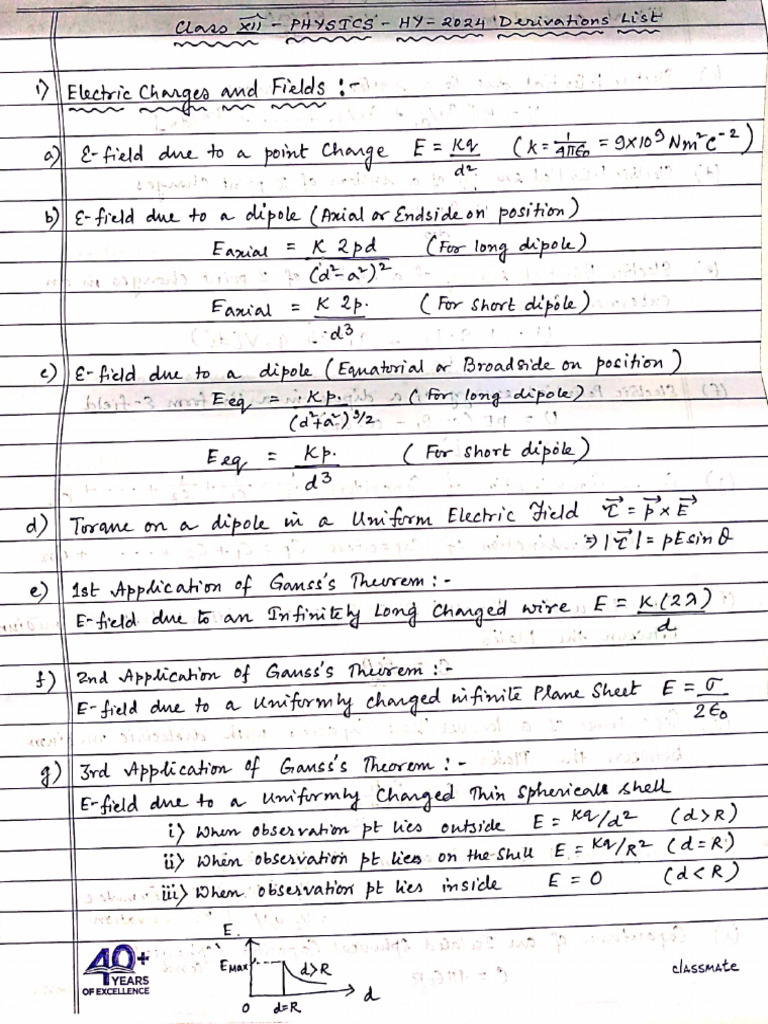 Class XII - PHYSICS - HY-2024 Derivations List
1) Electric Charges and Fields :-
a) E-field due to a point Charge E = Kq/d² (k = 1/4πϵ₀ = 9×10⁹ Nm²C⁻²)
b) E-field due to a dipole (Axial or Endside on position)
Eaxial = K 2pd/(d²-a²)² (For long dipole)
Eaxial = K 2p./d³ (For short dipole)
c) E-field due to a dipole (Equatorial or Broadside on position)
Eeq = Kp./(d²+a²)³/² (For long dipole)
Eeq = Kp./d³ (For short dipole)
d) Torque on a dipole in a Uniform Electric Field τ⃗ = p⃗ × E⃗
⇒ |τ⃗| = pEsinθ
e) 1st Application of Gauss's Theorem :-
E-field due to an Infinitely Long Charged wire E = K(2λ)/d
f) 2nd Application of Gauss's Theorem :-
E-field due to a Uniformly charged infinite Plane Sheet E = σ/2ϵ₀
g) 3rd Application of Gauss's Theorem :-
E-field due to a Uniformly Charged Thin Spherical Shell
i) When observation pt lies outside E = Kq/d² (d>R)
ii) When observation pt lies on the shell E = Kq/R² (d=R)
iii) When observation pt lies inside E = 0 (d<R)
E.
EMax
d>R
d
0 d=R
40+
YEARS
OF EXCELLENCE
classmate